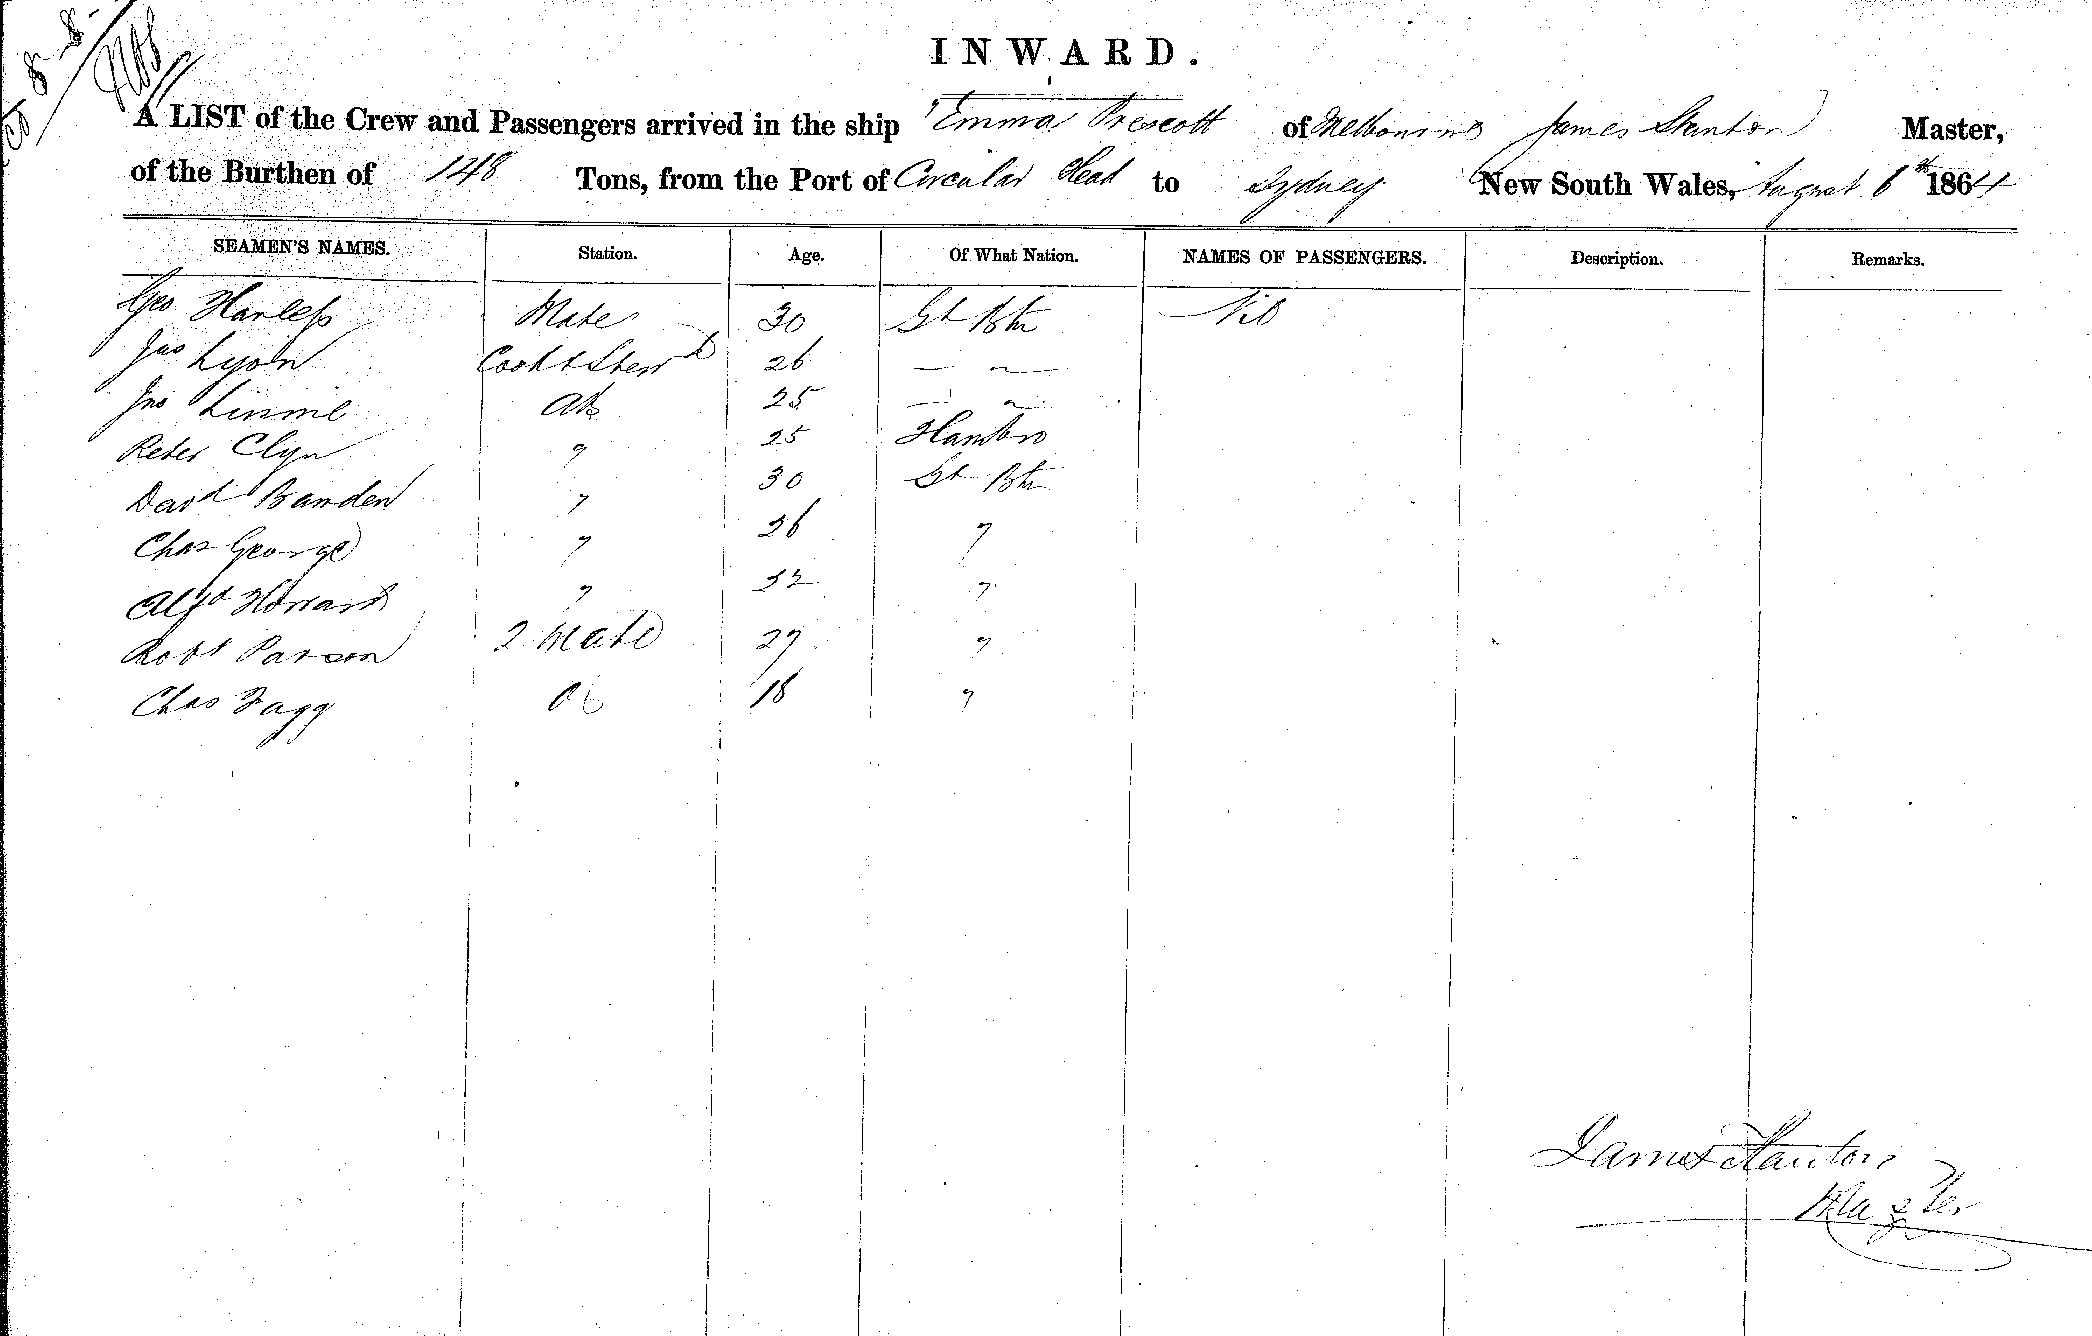 INWARD.
A LIST of the Crew and Passengers arrived in the ship "Emma Prescott of Melbourne James Stanton Master,
of the Burthen of 148 Tons, from the Port of Circular Head to Sydney New South Wales, August 6th 1864
SEAMEN'S NAMES. Station. Age. Of What Nation. NAMES OF PASSENGERS. Description. Remarks.
Geo Harless Mate 30 Gt Btn Nil
Jas Lyon Cook & Stewd 26 — —
Jno AB 25 — —
Peter Clyn " 25 Hambro
Davd " 30 Gt Btn
Chas George " 26 "
Alfd Howard " 32 "
Robt Parson 2 Mate 27 "
Chas Fagg 18 "
James Stanton
Master